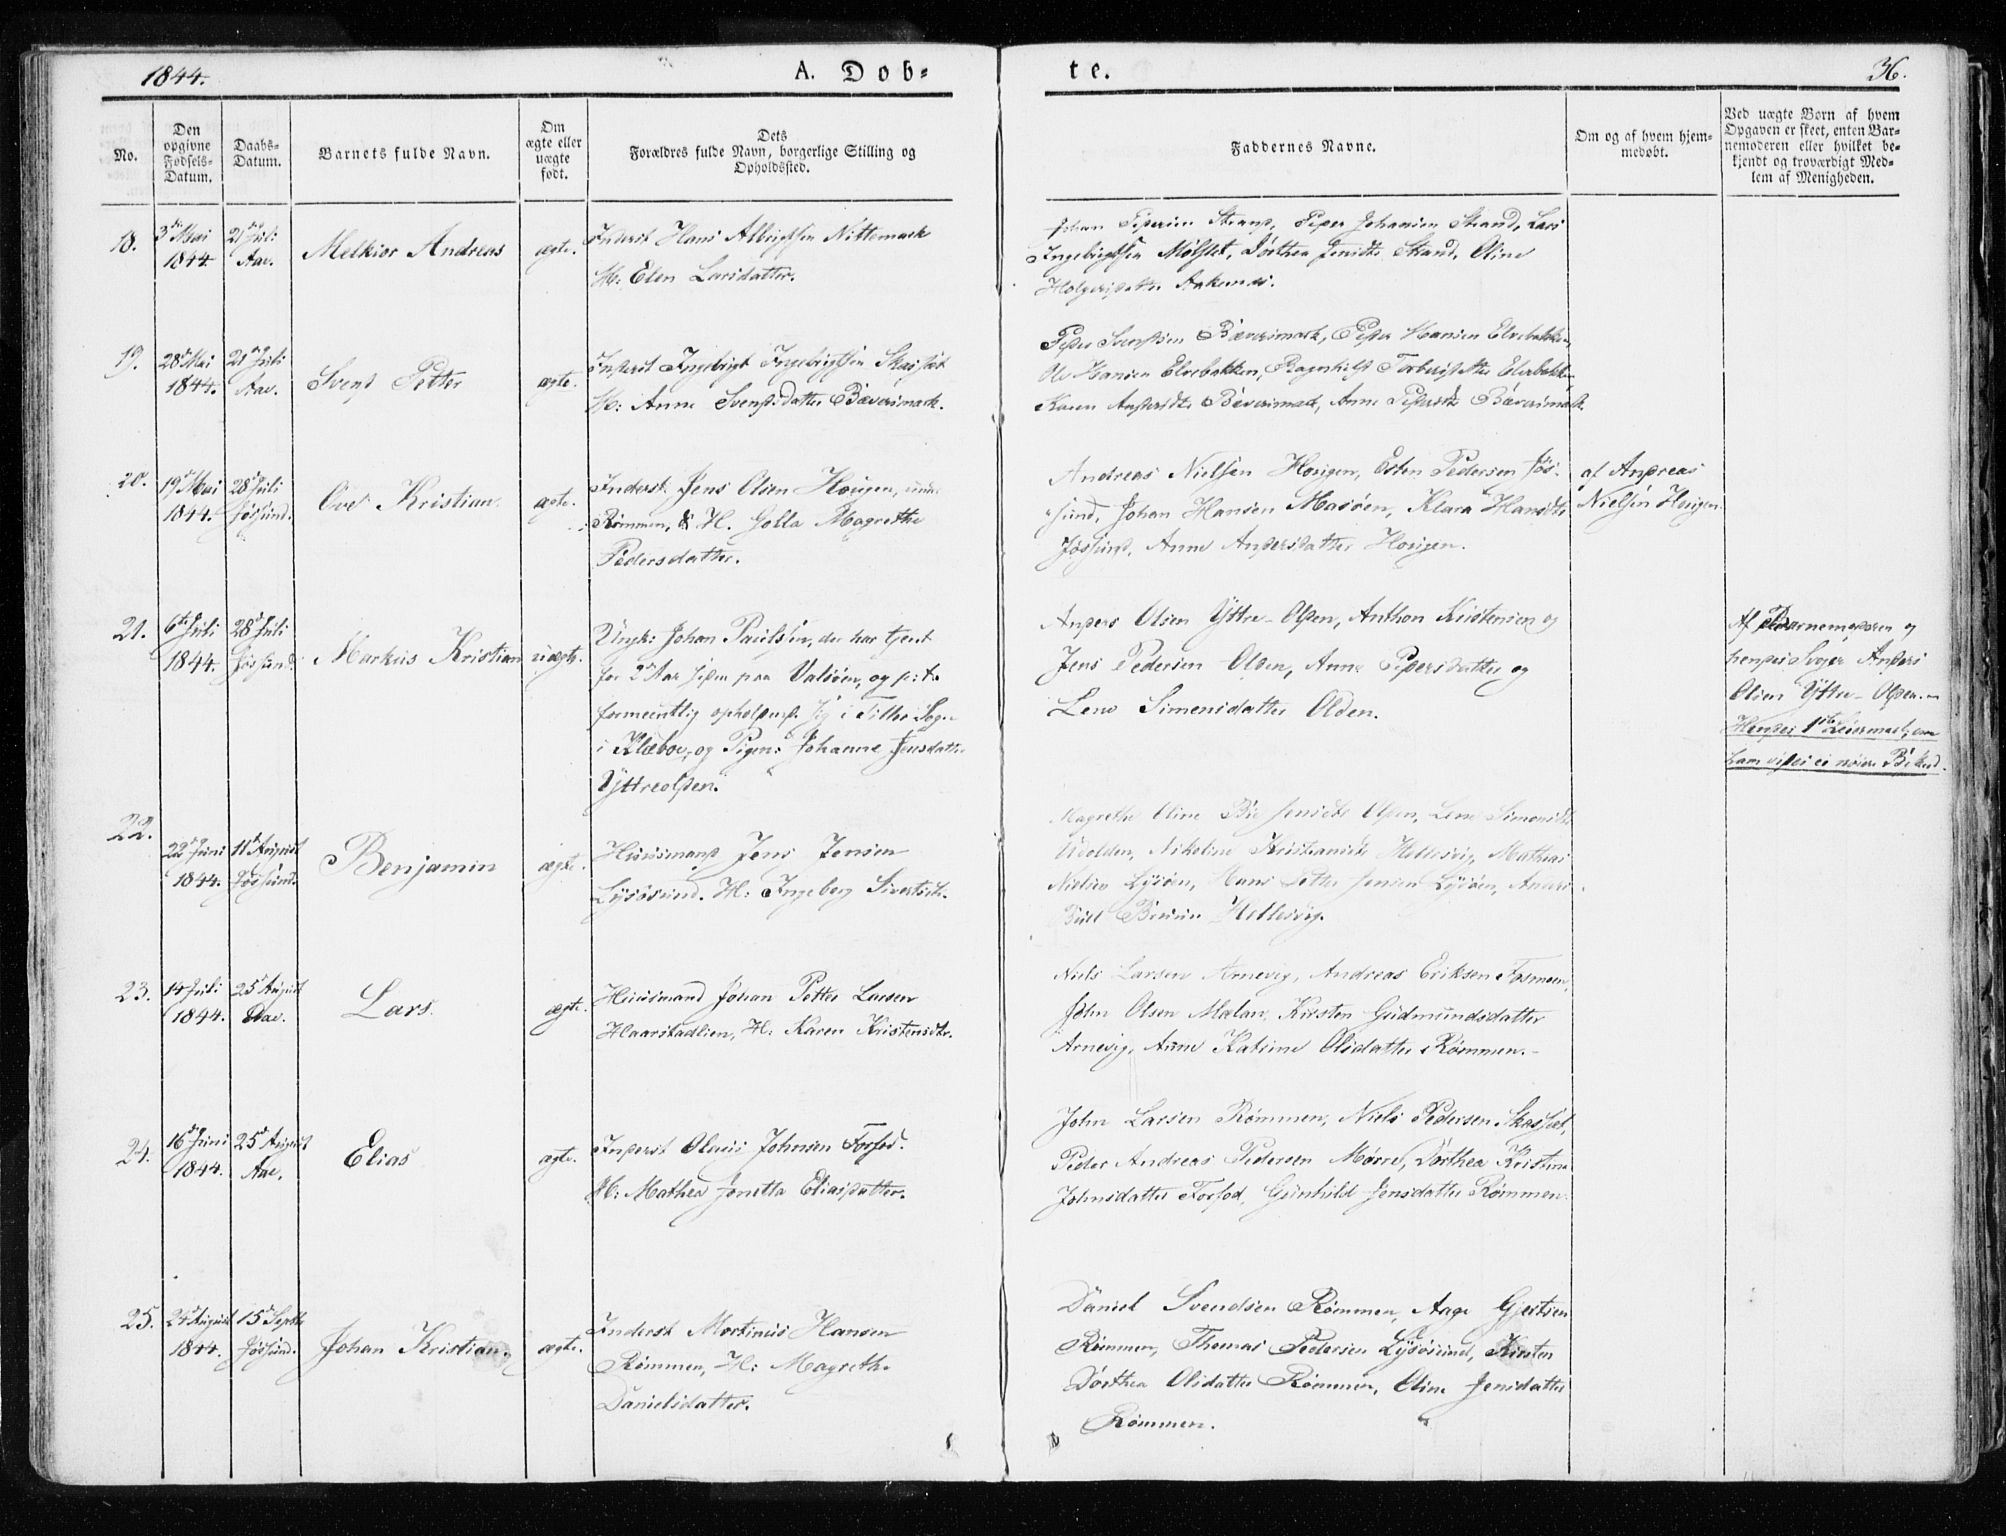 1844.
A. Døb-
te.
36.
No.
Den
opgivne
Fødsels-
Datum.
Daabs-
Datum.
Barnets fulde Navn.
Om
ægte eller
uægte
født.
Dets
Forældres fulde Navn, borgerlige Stilling og
Opholdssted.
Faddernes Navne.
Om og af hvem hjem-
medøbt.
Ved uægte Børn af hvem
Opgaven er skeet, enten Bar-
nemoderen eller hvilket be-
kjendt og troværdigt Med-
lem af Menigheden.
18.
3die Mai
1844.
21de Juli
Aae.
Melkior Andreas
ægte.
Inderst Hans Albrigtsen Nittemark
H: Elen Larsdatter.
Johan Pedersen Strand, Peder Johansen Strand, Lars
Ingebrigtsen Mølslet, Dorthea Jensdtr Strand, Oline
Holgersdatter
19.
28de Mai
1844.
21de Juli
Aae.
Svend Petter
ægte.
Inderst Ingebrigt Ingebrigtsen Skarsæt
H: Anne Svendsdatter Bæverimark.
Peder Svendsen Bæverimark, Peder Hansen Elvebakken,
Ole Hansen Elvebakken, Ragnhild Torbersdatter Elvebakken
Karen Andersdtr Bæverimark, Anne Pedersdtr Bæverimark.
20.
19de Mai
1844.
28de Juli
Jøssund.
Ove Kristian.
ægte.
Inderst Jens Olsen Hougen,
Rømmen, & H. Golla Magrethe
Pedersdatter.
Andreas Nielsen Hougen, Esten Pedersen Jøs-
sund, Johan Hansen Masøen, Klara Hansdtr
Jøssund, Anne Andersdatter Hougen.
af Andreas
Nielsen Hougen.
21.
6te Juli
1844.
28de Juli
Jøssund.
Markus Kristian
uægte.
Ungk: Johan Paulssen, der har tjent
for 2de Aar siden paa Valsøen, og p: t:
formeentlig opholdende sig i Tiller Sogn
i Klæboe, og Pigen: Johanne Jensdatter
Yttreolden.
Anders Olsen Yttre-Olden, Anthon Kristensen og
Jens Pedersen Olden, Anne Pedersdatter og
Lene Simensdatter Olden.
Af Barnemoderen og
hendes Svoger Anders
Olsen Yttre-Olden.-
Hendes 1ste Leiermaal, om
ham vides ei nøiere Beskeed.
22.
22de Juni
1844.
11te August
Jøssund.
Benjamin
ægte.
Huusmand Jens Jensen
Lysøsund. H: Ingeborg Sivertsdtr.
Magrethe Oline Jensdtr Olden, Lene Simonsdtr
Udolden, Nikoline Kristiansdtr Hellesvig, Mathias
Nielsen Lysøen, Hans Petter Jensen Lysøen,
Hellesvig.
23.
14 Juli
1844.
25de August
Aae.
Lars.
ægte.
Huusmand Johan Petter Larsen
Haarstadlien, H: Karen Kristensdtr.
Niels Larsen Arnevig, Andreas Eriksen Fosmoen,
John Olsen Malan, Kirsten Gudmundsdatter
Arnevig, Anne Katrine Olsdatter Rømmen.-
24.
16de Juni
1844.
25de August
Aae.
Elias
ægte.
Inderst Olaus Johnsen Forfod.
H: Mathea Jonetta Eliasdatter.
John Larsen Rømmen, Niels Pedersen Skarsæt,
Peder Andreas Pedersen Mørre, Dorthea Kristine
Johnsdatter Forfod, Gunhild Jensdatter Rømmen.
25.
24de August
1844.
15de Septbr
Jøssund.
Johan Kristian
ægte.
Inderst Mortinus Hansen
Rømmen, H: Magrethe
Danielsdatter.
Daniel Svendsen Rømmen, Aage Gjertsen
Rømmen, Thomas Pedersen Lysøsund, Kirsten
Dorthea Olsdatter Rømmen, Oline Jensdatter
Rømmen.